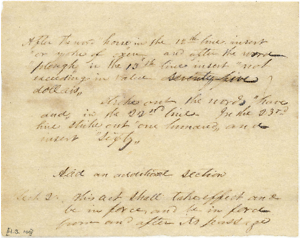 After the words horse in the 12th line insert
or yoke of oxen and after the word
plough in the 13th line insert "not
exceeding in value seventy five
dollars,
Strike out the words "
and, in the 22nd line In the 23rd
line strike out "one hundred, and
insert "Sixty,
Add an additional section
Sec 2. This act shall take effect and
be in force and be in force
from and after its passage